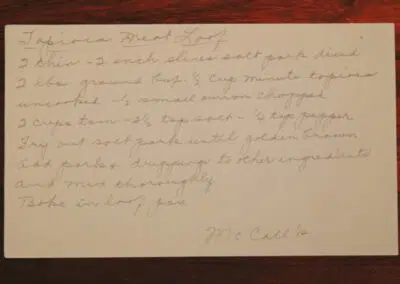 Tapioca Meat Loaf
2 thin - 2 inch slices salt pork diced
2 lbs ground beef - ½ cup minute tapioca
uncooked - ½ small onion chopped
2 cups tom - 2½ tsp salt - ¼ tsp pepper
Fry out salt pork until golden brown
Add pork & drippings to other ingredients
and mix thoroughly
Bake in loaf pan
McCall's